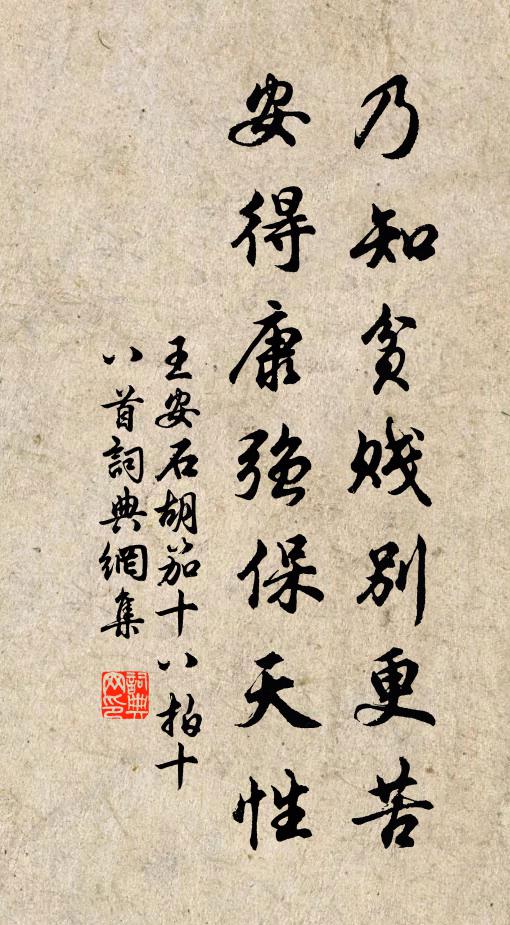 乃知貧賤別更苦
安得康強保天性
王安石胡笳十八拍十
八首詞典網集
詞典
网印